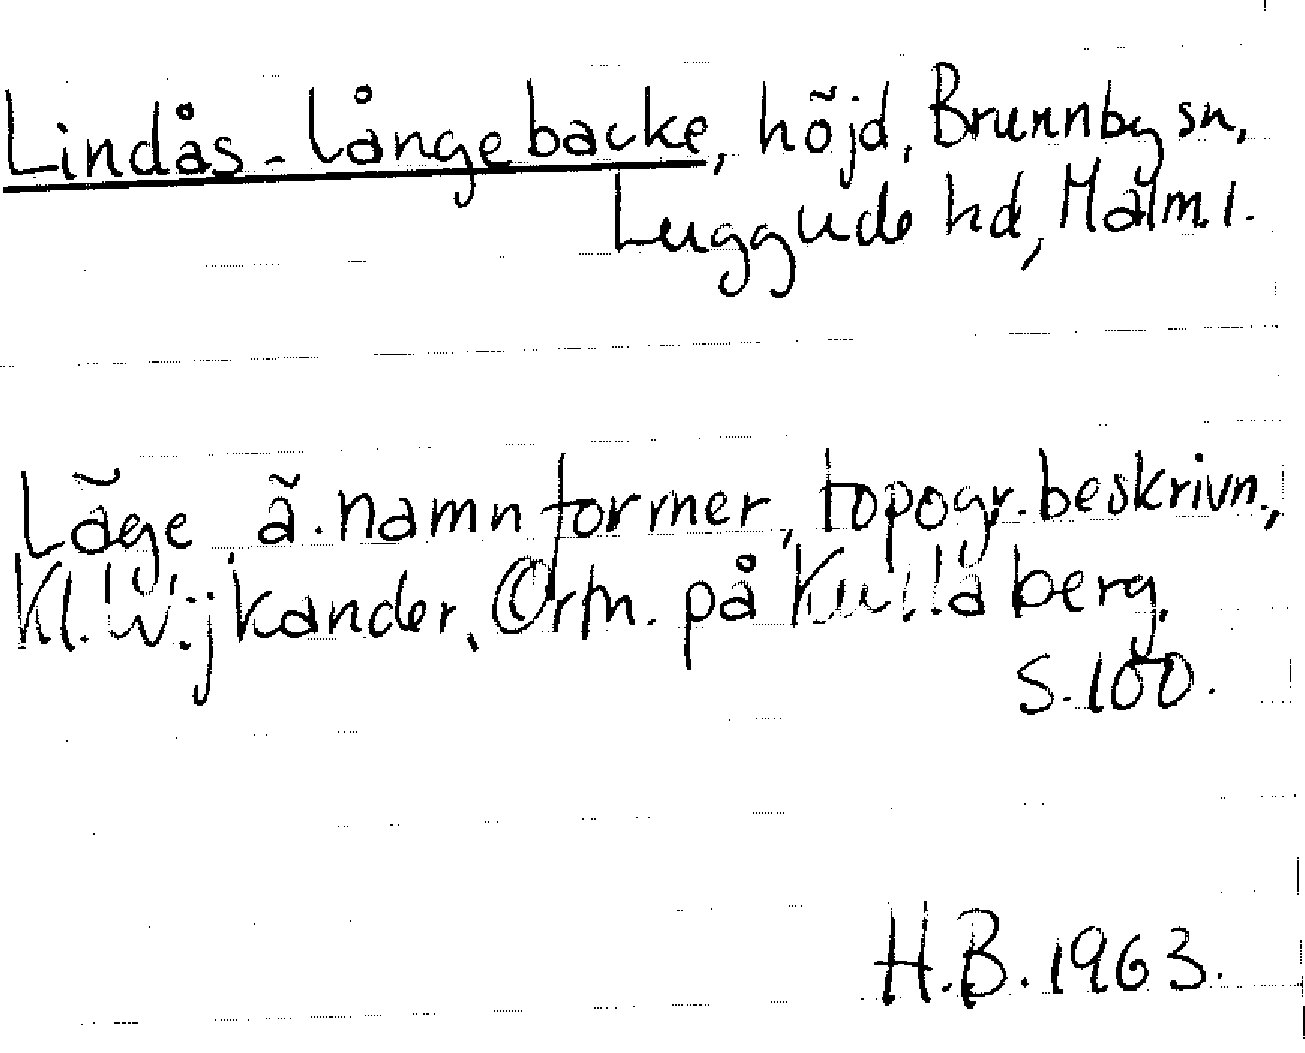 Lindås-långebacke, höjd, Brunnby sn,
Luggude hd, Malm.l.
Läge, ä. namnformer, topogr. beskrivn.,
Kl. Wijkander, Ortn. på Kullaberg,
S. 100.
H.B. 1963.